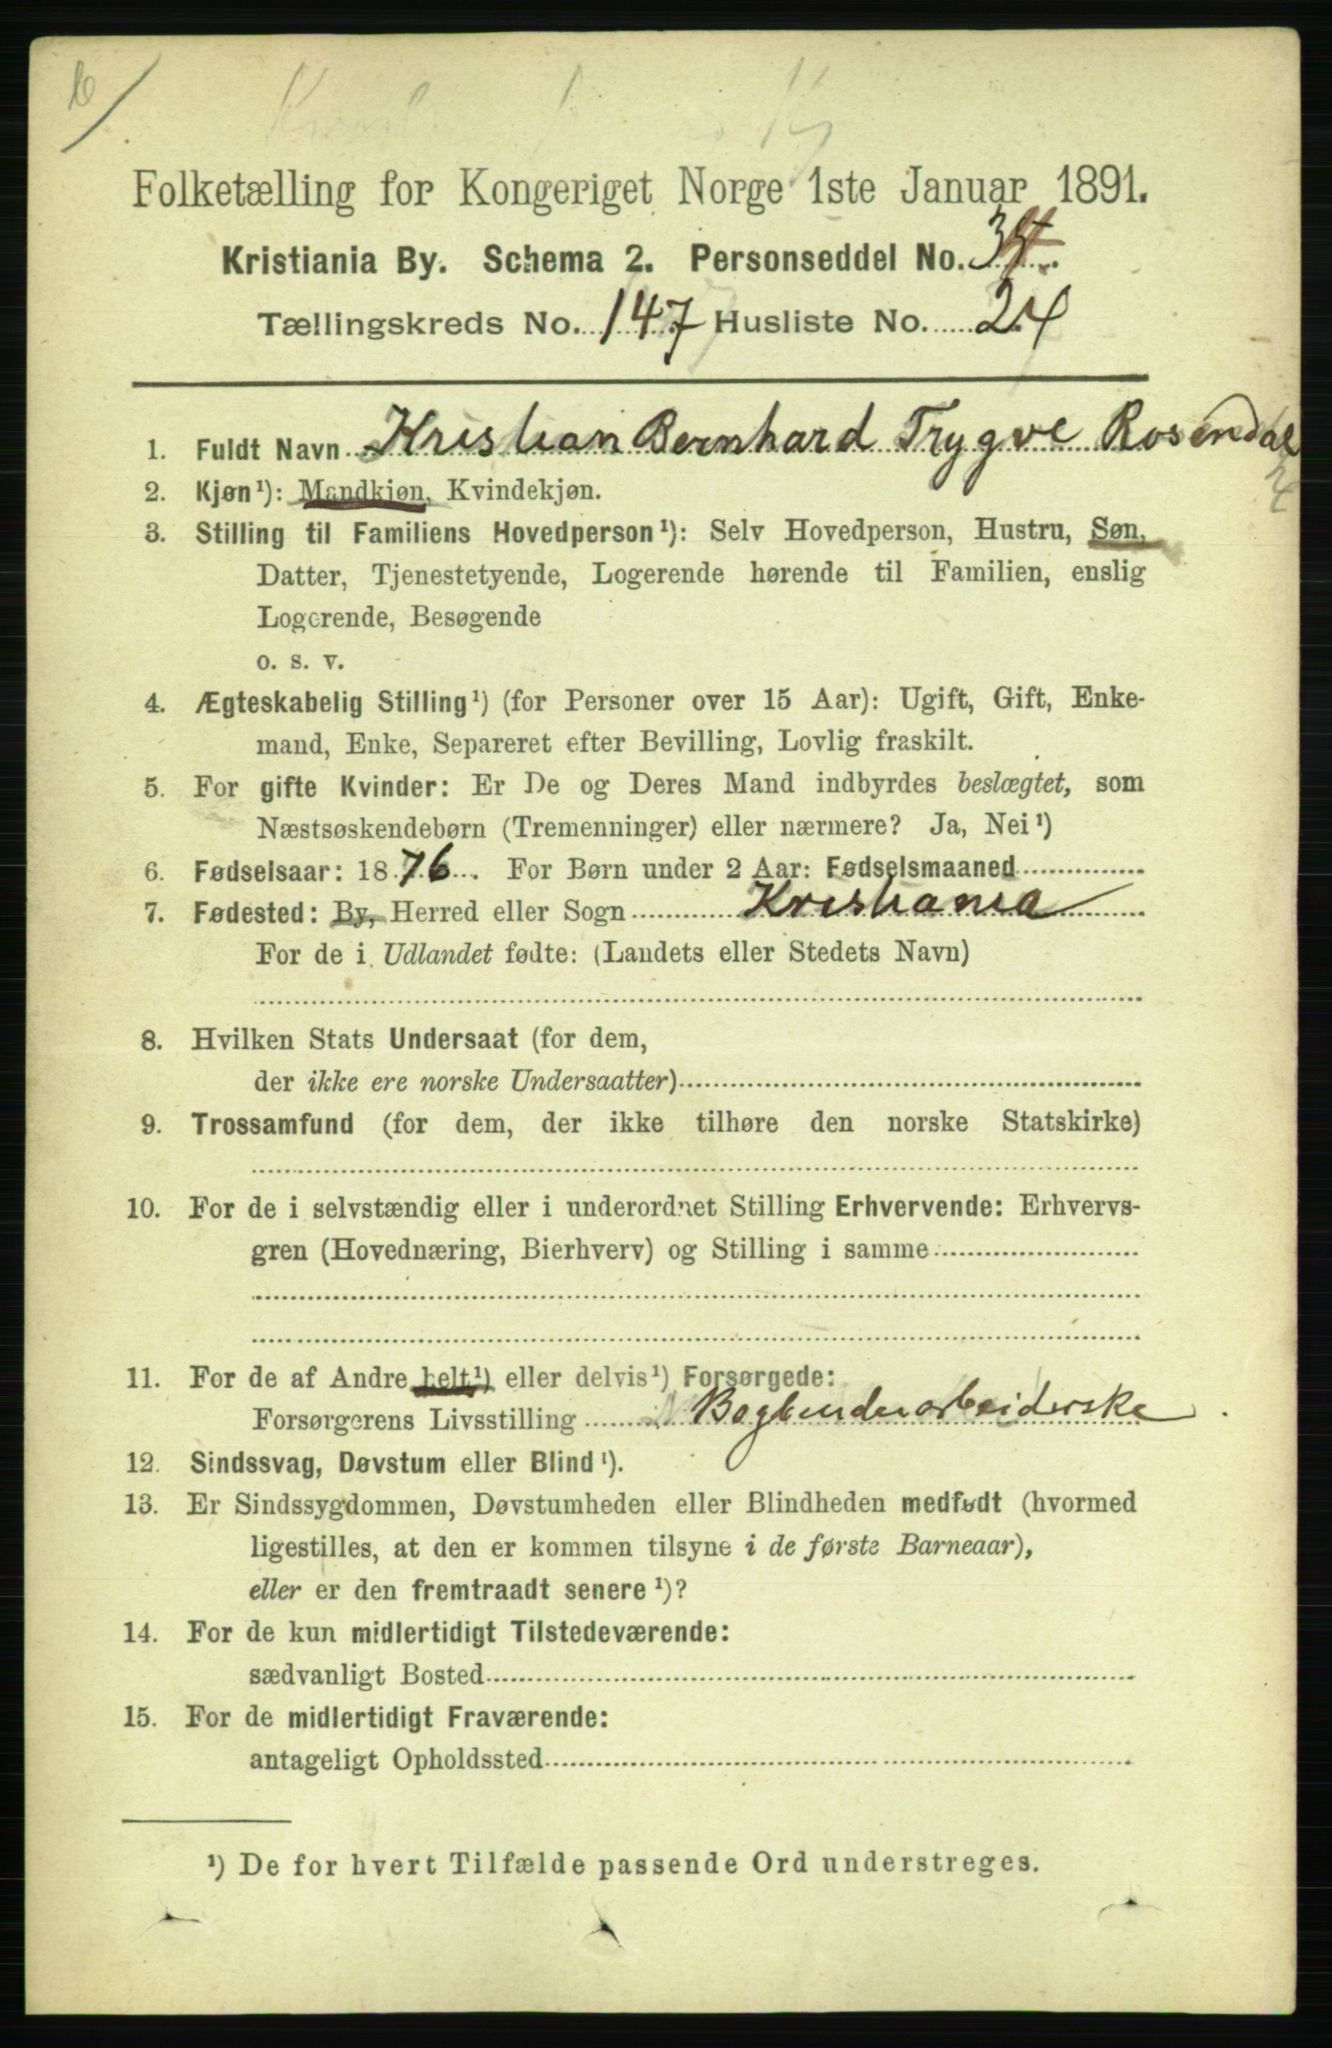 Folketælling for Kongeriget Norge 1ste Januar 1891.
Kristiania By. Schema 2. Personseddel No.
Tællingskreds No. 147 Husliste No. 24
1. Fuldt Navn Kristian Bernhard Trygve Rosendal
2. Kjøn¹): Mandkjøn, Kvindekjøn.
3. Stilling til Familiens Hovedperson¹): Selv Hovedperson, Hustru, Søn,
Datter, Tjenestetyende, Logerende hørende til Familien, enslig
Logerende, Besøgende
o. s. v.
4. Ægteskabelig Stilling¹) (for Personer over 15 Aar): Ugift, Gift, Enke-
mand, Enke, Separeret efter Bevilling, Lovlig fraskilt.
5. For gifte Kvinder: Er De og Deres Mand indbyrdes beslægtet, som
Næstsøskendebørn (Tremenninger) eller nærmere? Ja, Nei¹)
6. Fødselsaar: 1876. For Børn under 2 Aar: Fødselsmaaned
7. Fødested: By, Herred eller Sogn Kristiania
For de i Udlandet fødte: (Landets eller Stedets Navn)
8. Hvilken Stats Undersaat (for dem,
der ikke ere norske Undersaatter)
9. Trossamfund (for dem, der ikke tilhøre den norske Statskirke)
10. For de i selvstændig eller i underordnet Stilling Erhvervende: Erhvervs-
gren (Hovednæring, Bierhverv) og Stilling i samme
11. For de af Andre helt¹) eller delvis¹) Forsørgede:
Forsørgerens Livsstilling Bogbinderarbeiderske
12. Sindssvag, Døvstum eller Blind¹).
13. Er Sindssygdommen, Døvstumheden eller Blindheden medfødt (hvormed
ligestilles, at den er kommen tilsyne i de første Barneaar),
eller er den fremtraadt senere¹)?
14. For de kun midlertidigt Tilstedeværende:
sædvanligt Bosted
15. For de midlertidigt Fraværende:
antageligt Opholdssted
¹) De for hvert Tilfælde passende Ord understreges.